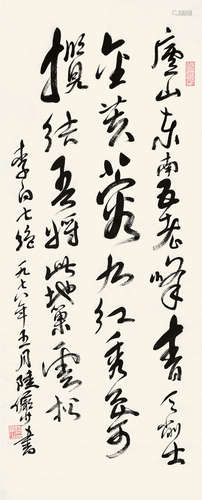 庐山东南五老峰青天削出
金芙蓉九江秀色可
揽结吾将此地巢云松
李白七绝一九七八年五月陆俨少书